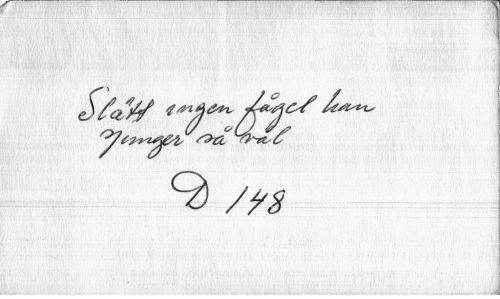 Slätt ingen fågel han
sjunger så väl
D 148